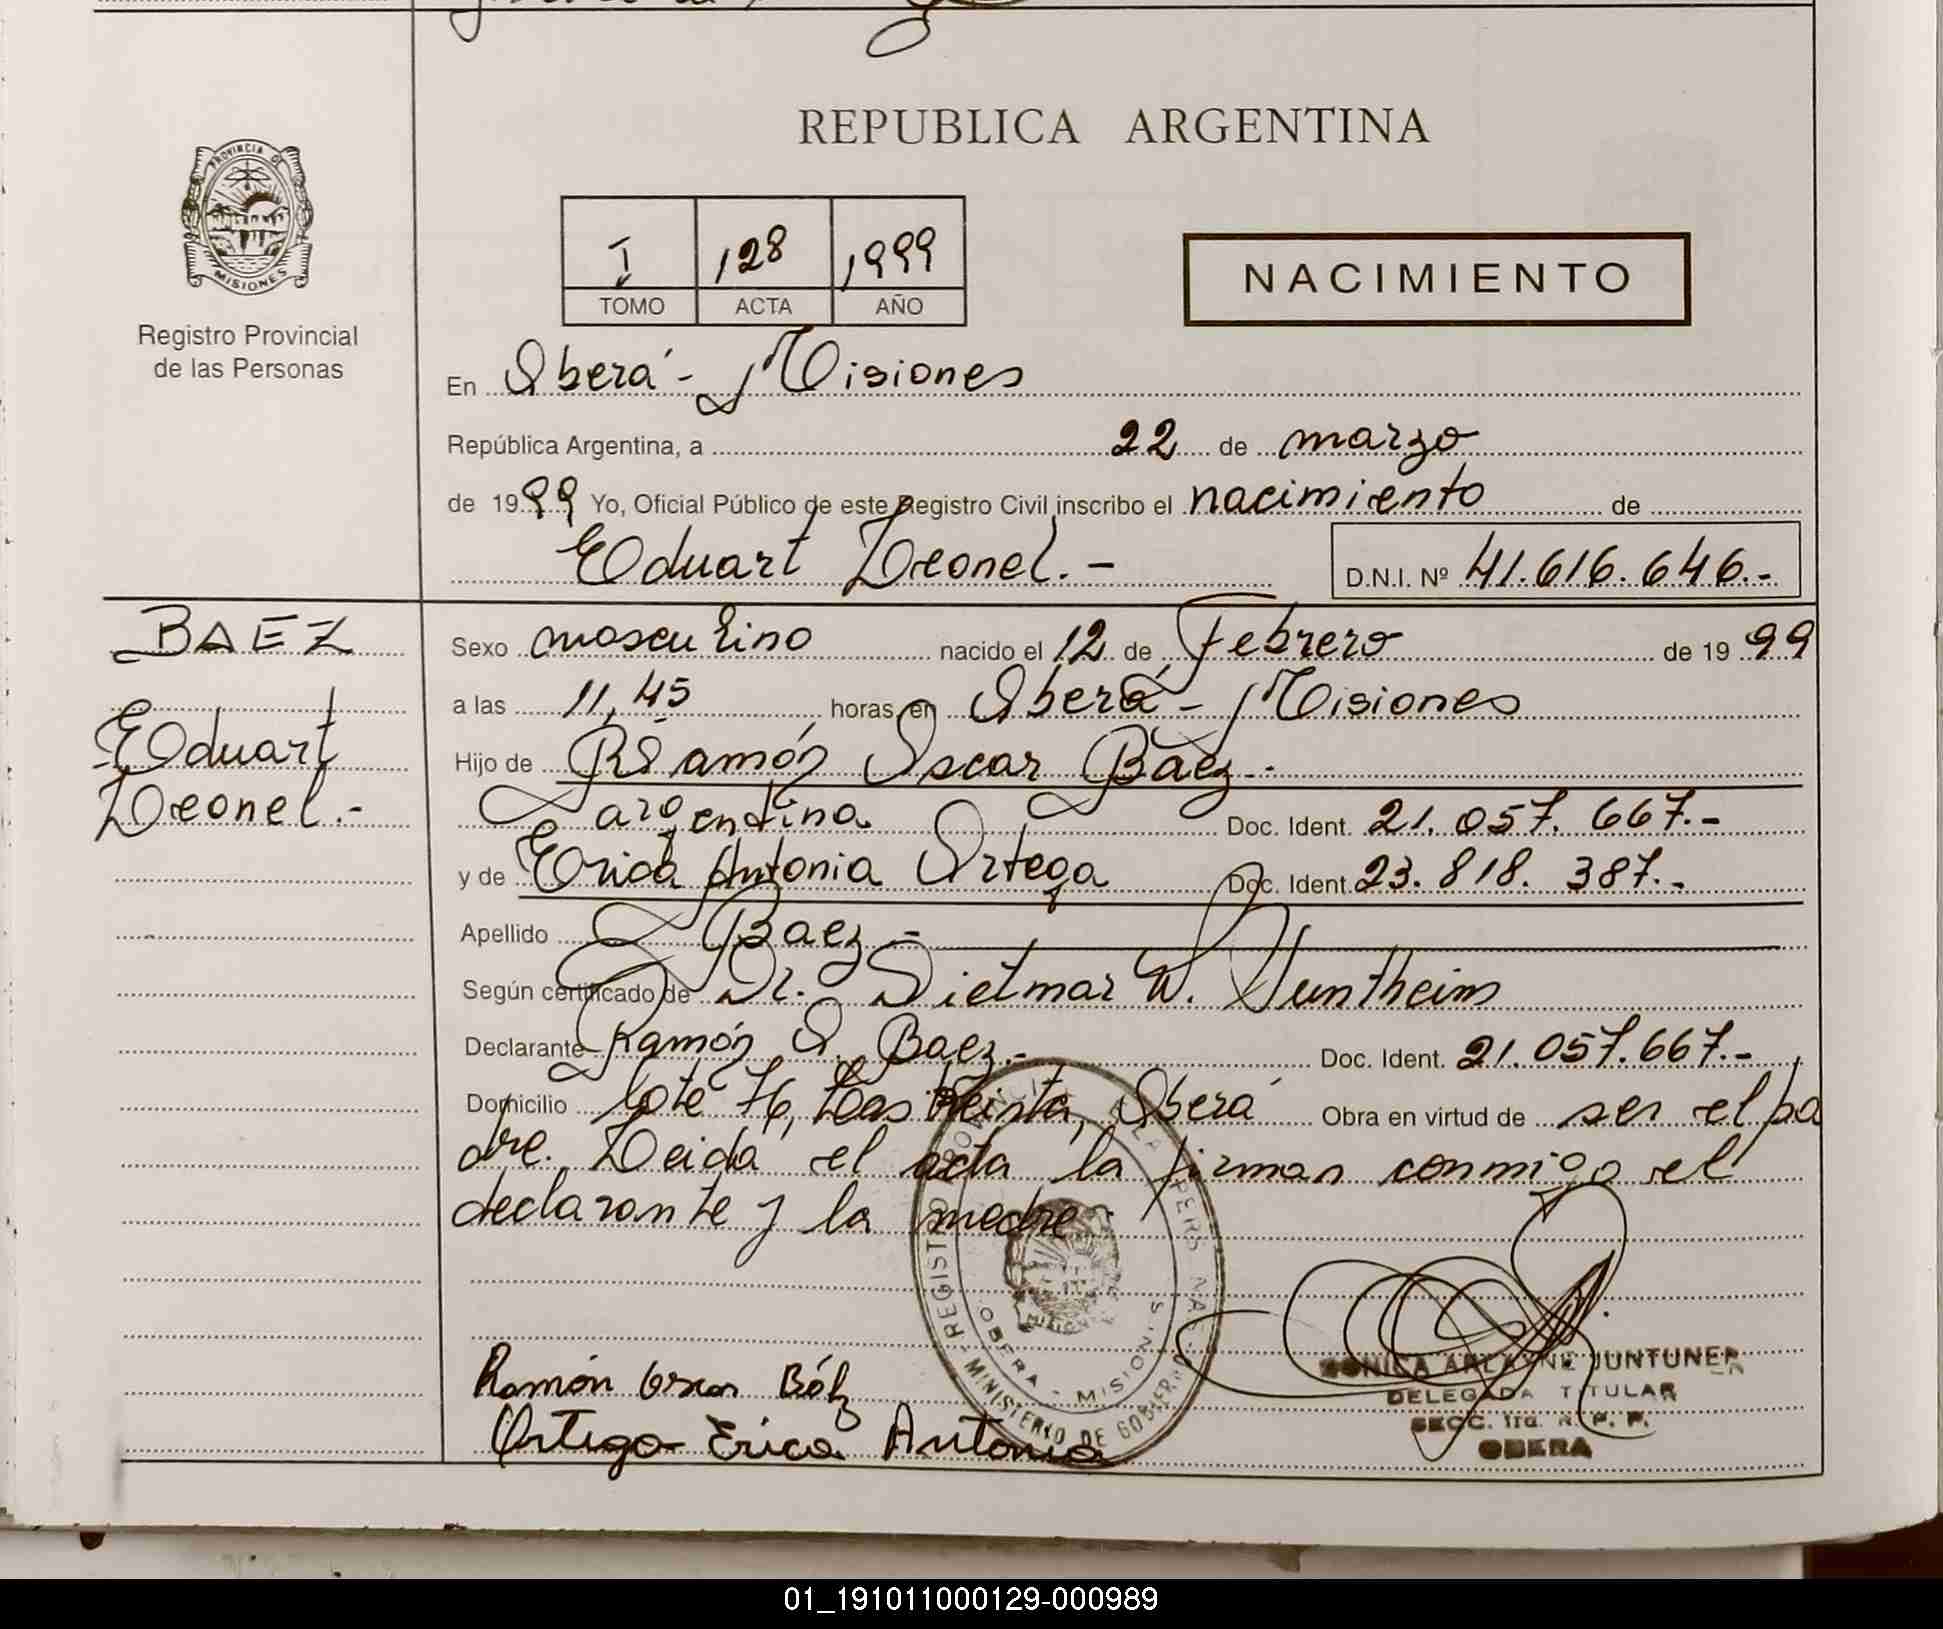 REPUBLICA ARGENTINA
PROVINCIA DE
MISIONES
Registro Provincial
de las Personas
I 128 1999
TOMO ACTA AÑO
NACIMIENTO
En Oberá - Misiones
República Argentina, a 22 de marzo
de 1999 Yo, Oficial Público de este Registro Civil inscribo el nacimiento de
Eduart Leonel.- D.N.I. Nº 41.616.646.-
BAEZ
Eduart
Leonel.-
Sexo masculino nacido el 12 de Febrero de 1999
a las 11,45 horas en Oberá - Misiones
Hijo de Ramón Oscar Baez.-
argentina Doc. Ident. 21.057.667.-
y de Erica Antonia Ortega Doc. Ident. 23.818.387.-
Apellido Baez -
Según certificado de Dr. Dietmar W.
Declarante Ramón O. Baez.- Doc. Ident. 21.057.667.-
Domicilio Lote 76, Oberá Obra en virtud de ser el pa
dre. Leida el acta la firman conmigo el
declarante y la madre.
REGISTRO PROVINCIAL DE LAS PERSONAS
MINISTERIO DE GOBIERNO
OBERA - MISIONES
MISIONES
Ramón Oscar Báez
Ortega Erica Antonia
MONICA ARLAYNE JUNTUNER
DELEGADA TITULAR
SECC. 1ra. R. P. P.
OBERA
01_191011000129-000989